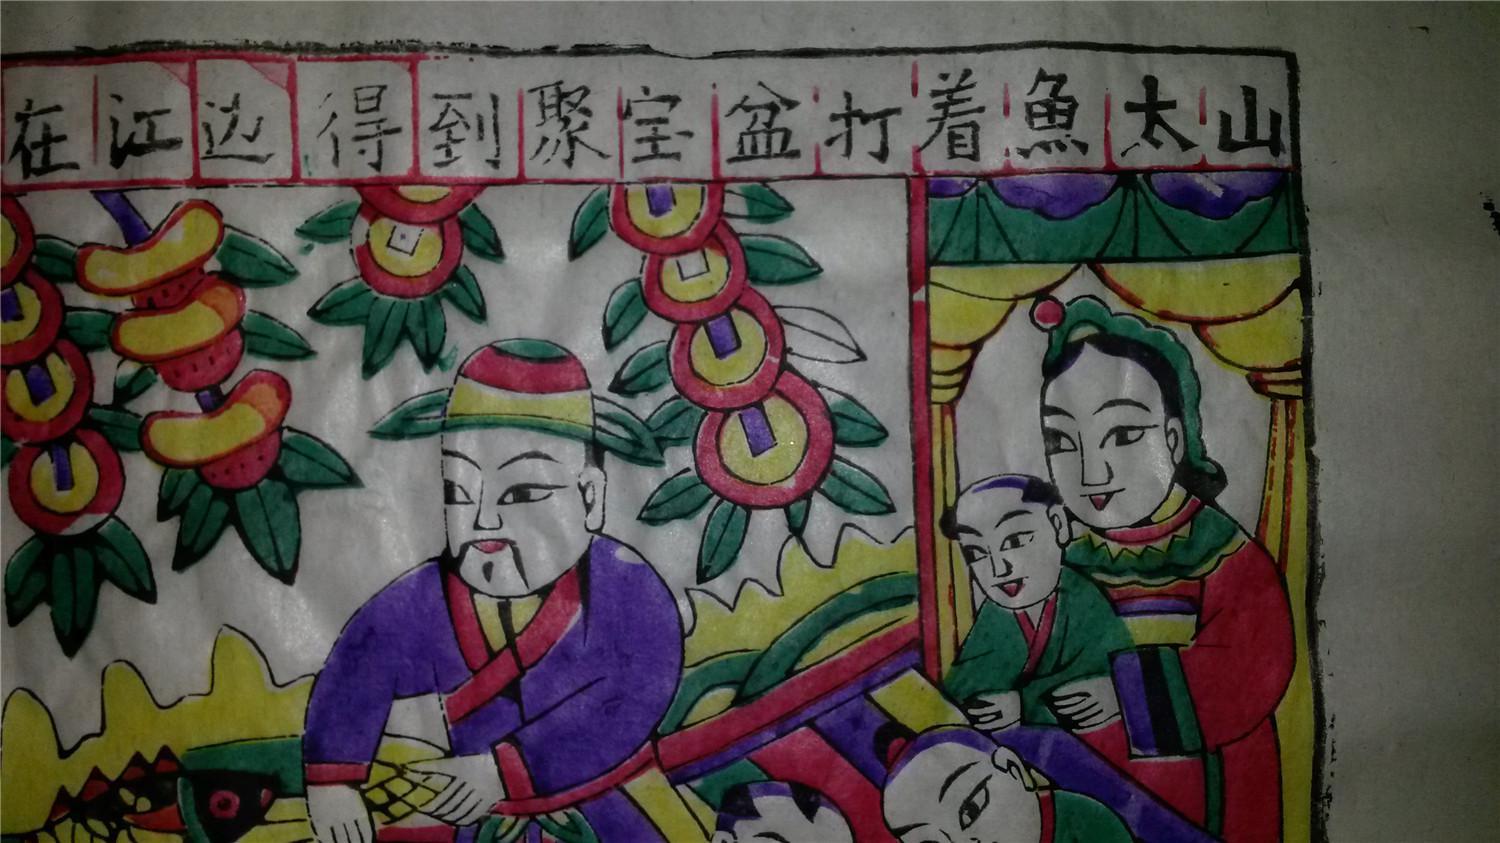 在江边得到聚宝盆打着魚太山